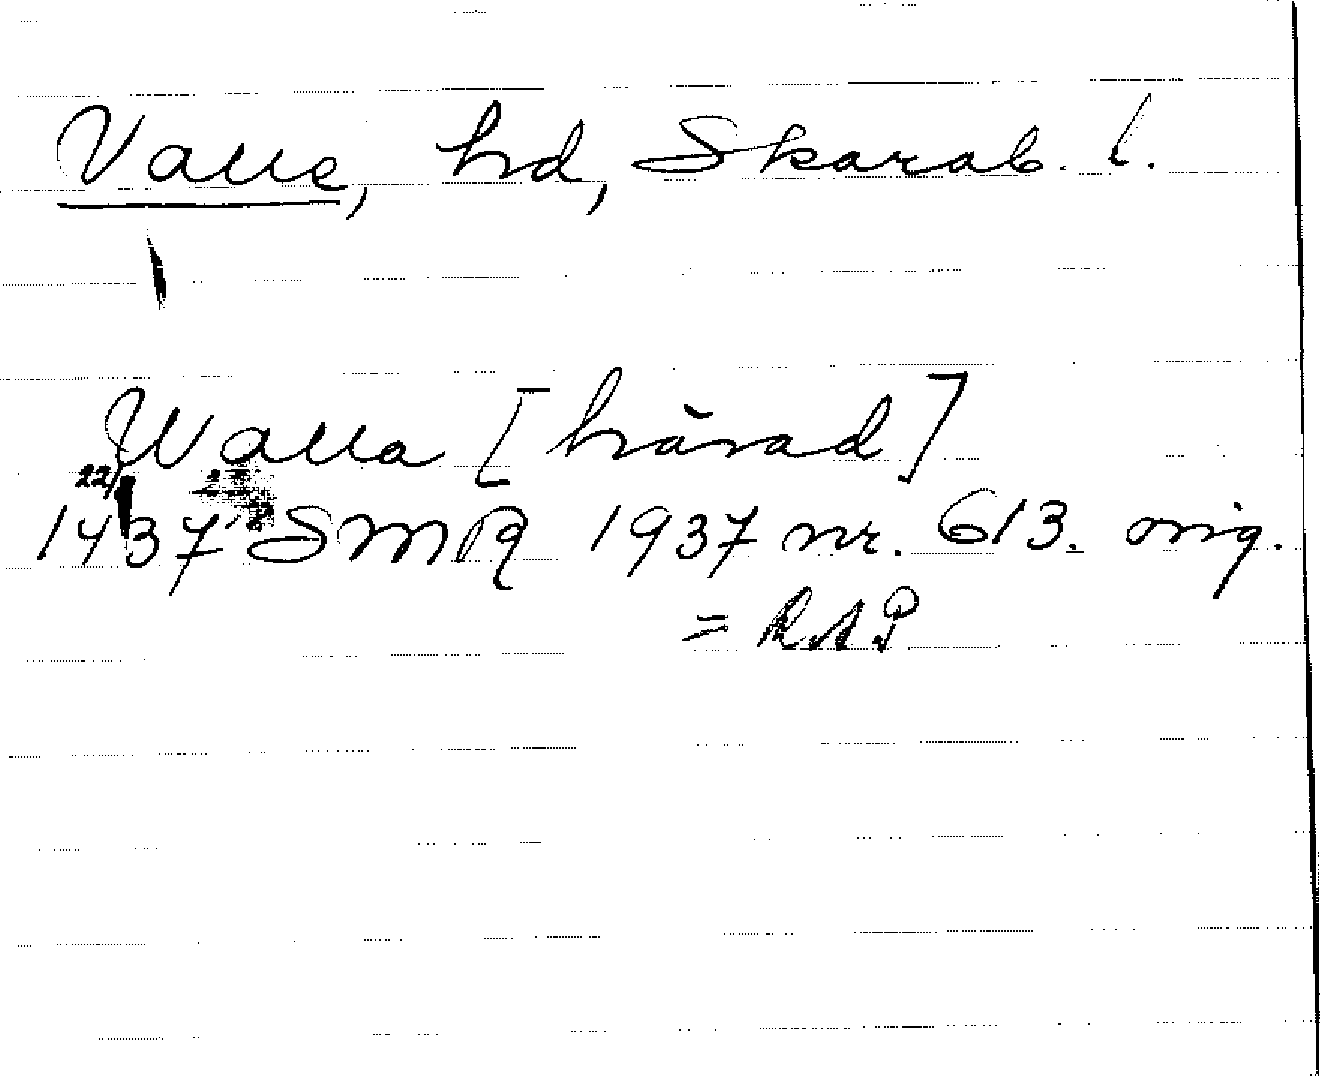 Valle, hd, Skarab. l.
Walla [härad]
22/
1437 SMR 1937 nr. 613. orig.
= RAP